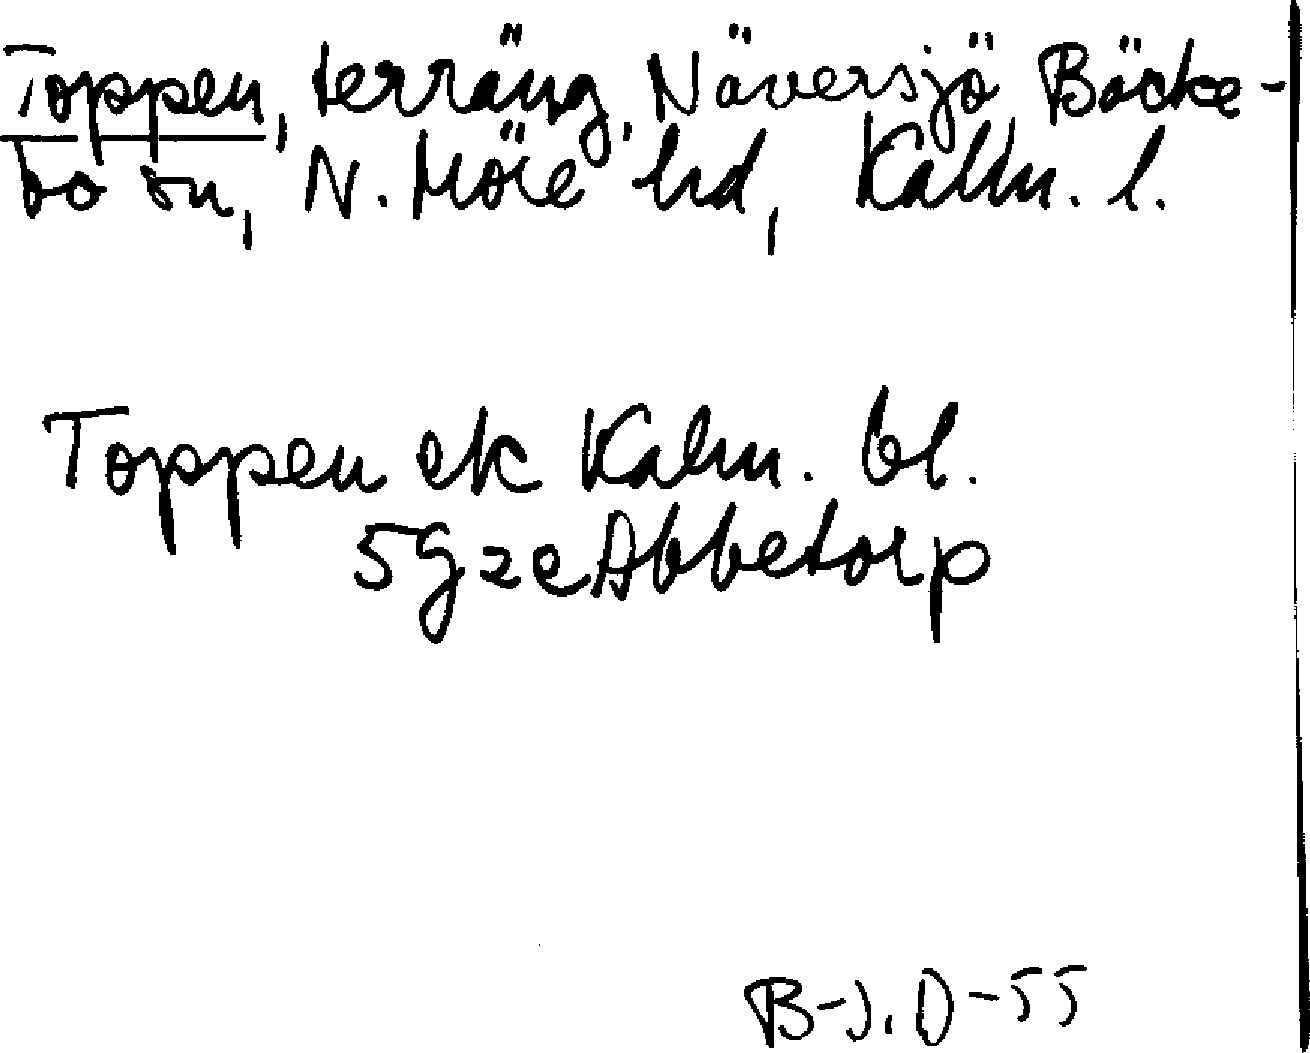 Toppen, terräng, Näversjö Bäcke-
bo sn, N. Möre hd, Kalm. l.
Toppen ek Kalm. bl.
5G 2e Abbetorp
B-J. D-55